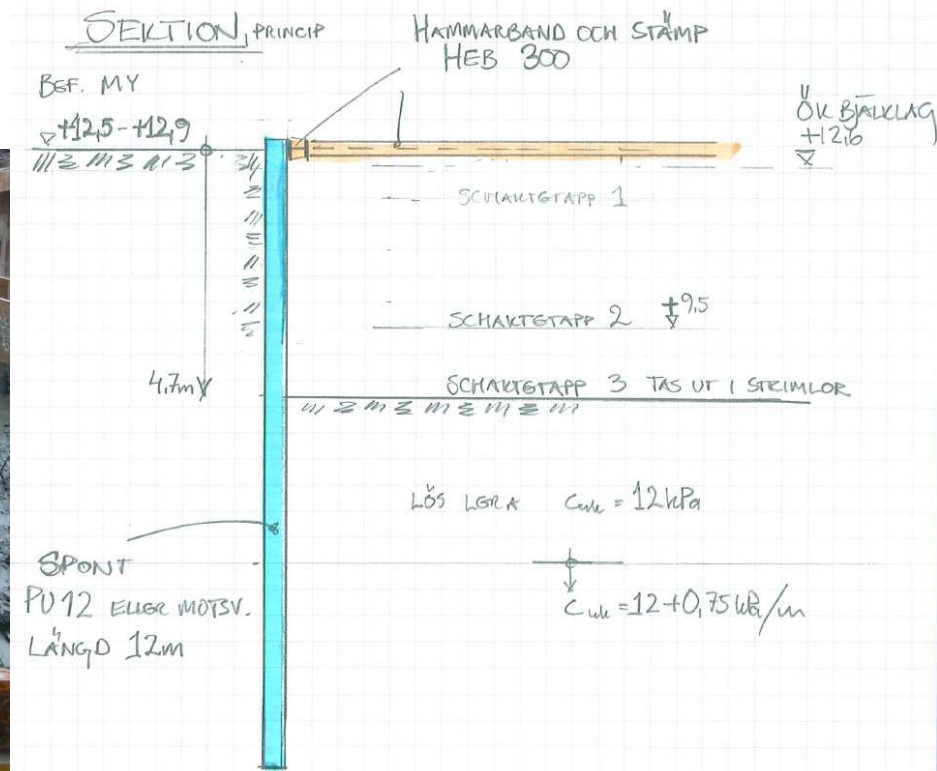 SEKTION, PRINCIP
HAMMARBAND OCH STÄMP
HEB 300
BEF. MY
+12,5-+12,9
ÖK BJÄLKLAG
+12,6
SCHAKTETAPP 1
SCHAKTETAPP 2 +9,5
4,7m
SCHAKTETAPP 3 TAS UT I STRIMLOR
LÖS LERA Cuk = 12 kPa
SPONT
PU12 ELLER MOTSV.
LÄNGD 12m
Cuk = 12+0,75 kPa/m